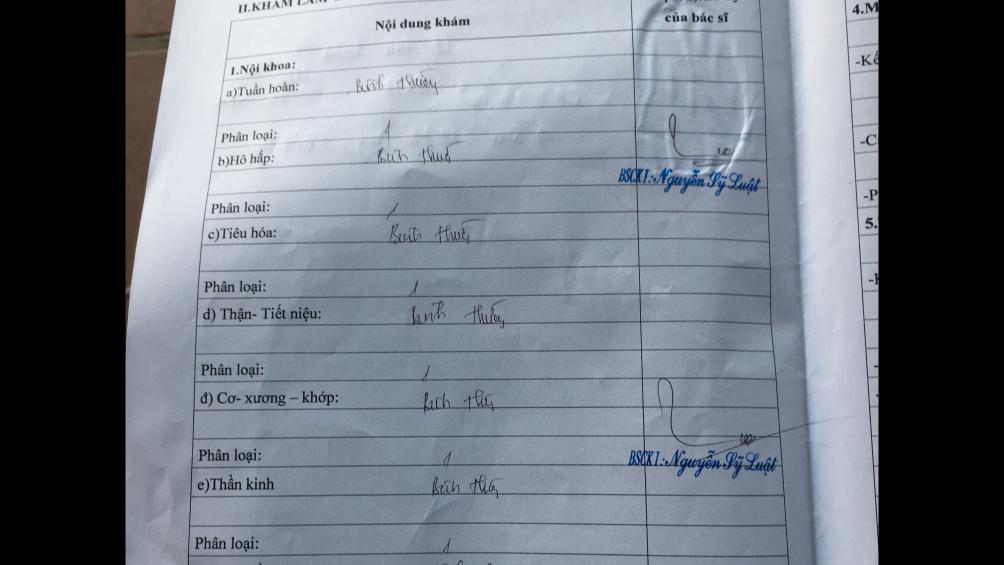 II.KHÁM LÂM
Nội dung khám
của bác sĩ
1.Nội khoa:
a)Tuần hoàn: Bình thường
Phân loại: 1
b)Hô hấp: Bình thườ
BSCKI:Nguyễn Sỹ Luật
Phân loại: 1
c)Tiêu hóa: Bình thườ
Phân loại: 1
d) Thận- Tiết niệu: Bình thường
Phân loại: 1
đ) Cơ- xương – khớp: Bình thg
BSCKI:Nguyễn Sỹ Luật
Phân loại: 1
e)Thần kinh Bình thg
Phân loại: 1
4.M
-Kế
-C
-P
5.